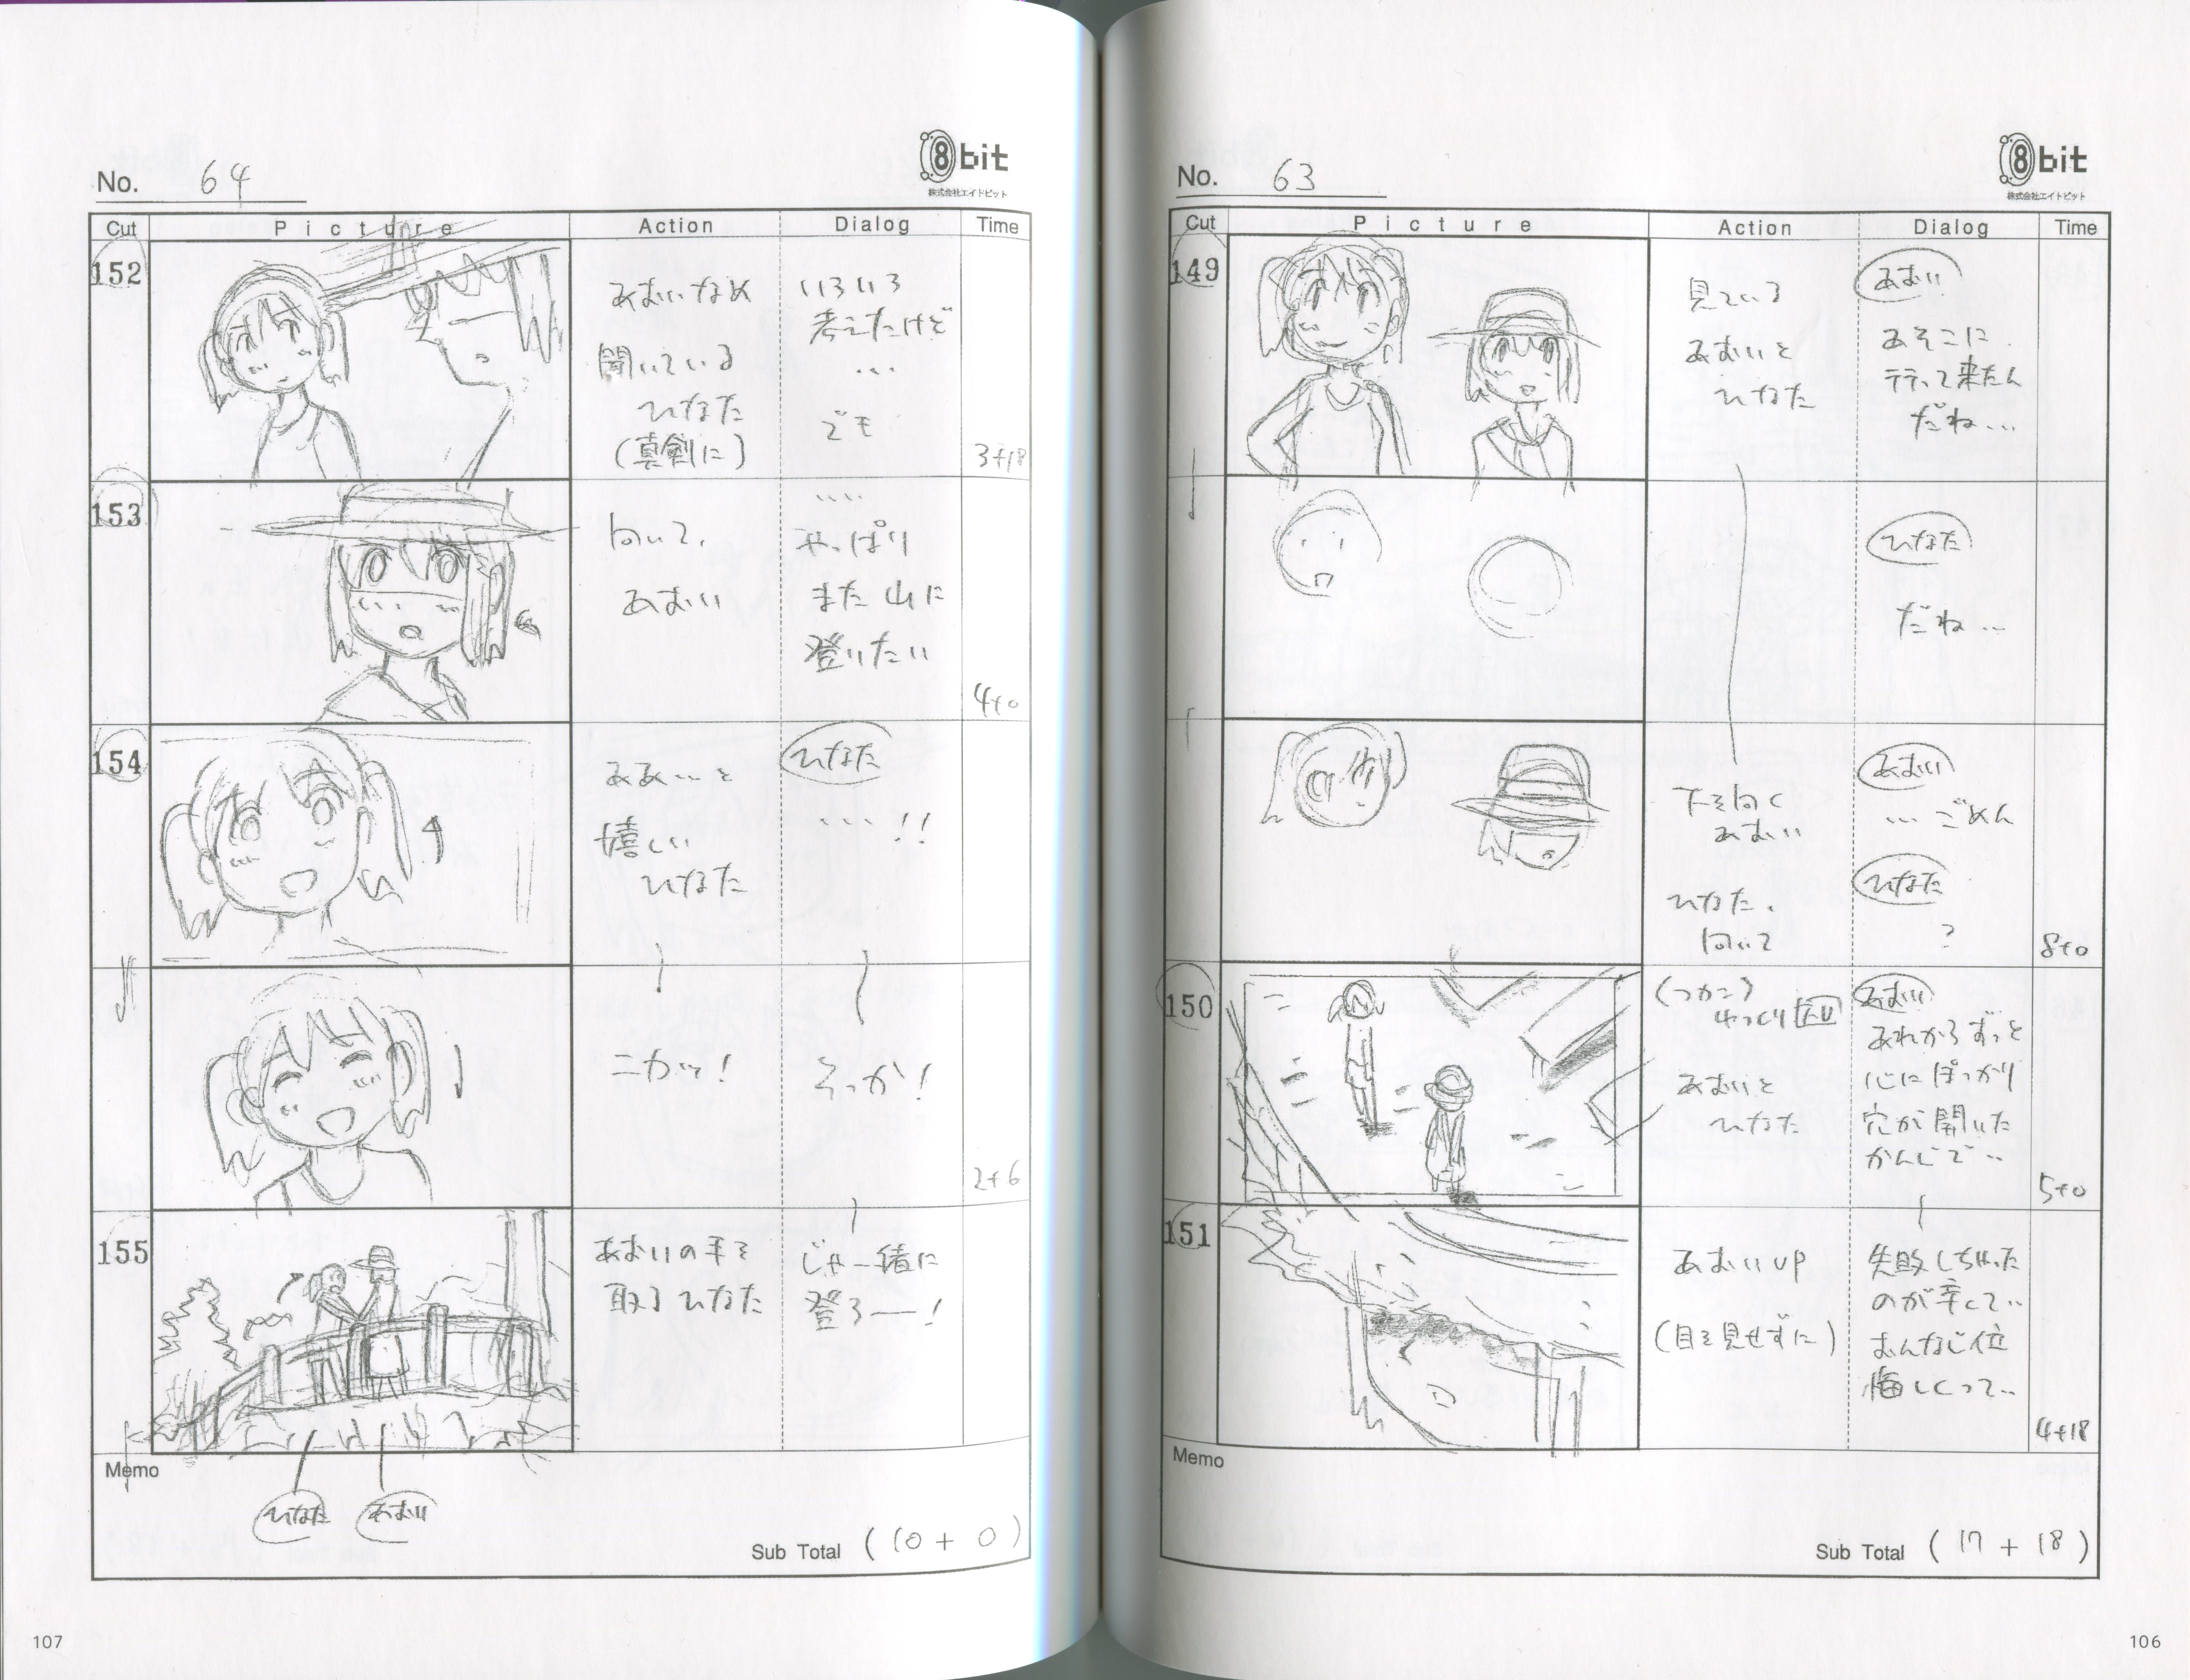 No. 63
8bit
株式会社エイトビット
Cut
Picture
Action
Dialog
Time
149
見ている
あおいと
ひなた
あおい
あそこに
立って来たん
だね…
ひなた
だね…
下を向く
あおい
ひなた、
向いて
あおい
…ごめん
ひなた
?
8+0
150
ゆっくりT.U
あおいと
ひなた
あおい
あれからずっと
心にぽっかり
穴が開いた
かんじで…
5+0
151
あおいUP
(目を見せずに)
失敗しちゃった
のが辛くて…
おんなじ位
悔しくって…
4+18
Memo
Sub Total (17+18)
106
No. 64
8bit
株式会社エイトビット
Cut
Picture
Action
Dialog
Time
152
あおいなめ
聞いている
ひなた
(真剣に)
いろいろ
考えたけど
…
でも
3+18
153
向いて、
あおい
….
やっぱり
また山に
登りたい
4+0
154
ああ…と
嬉しい
ひなた
ひなた
…!!
ニカッ!
そっか!
2+6
155
あおいの手を
取るひなた
じゃ一緒に
登ろー!
Memo
ひなた
あおい
Sub Total (10+0)
107